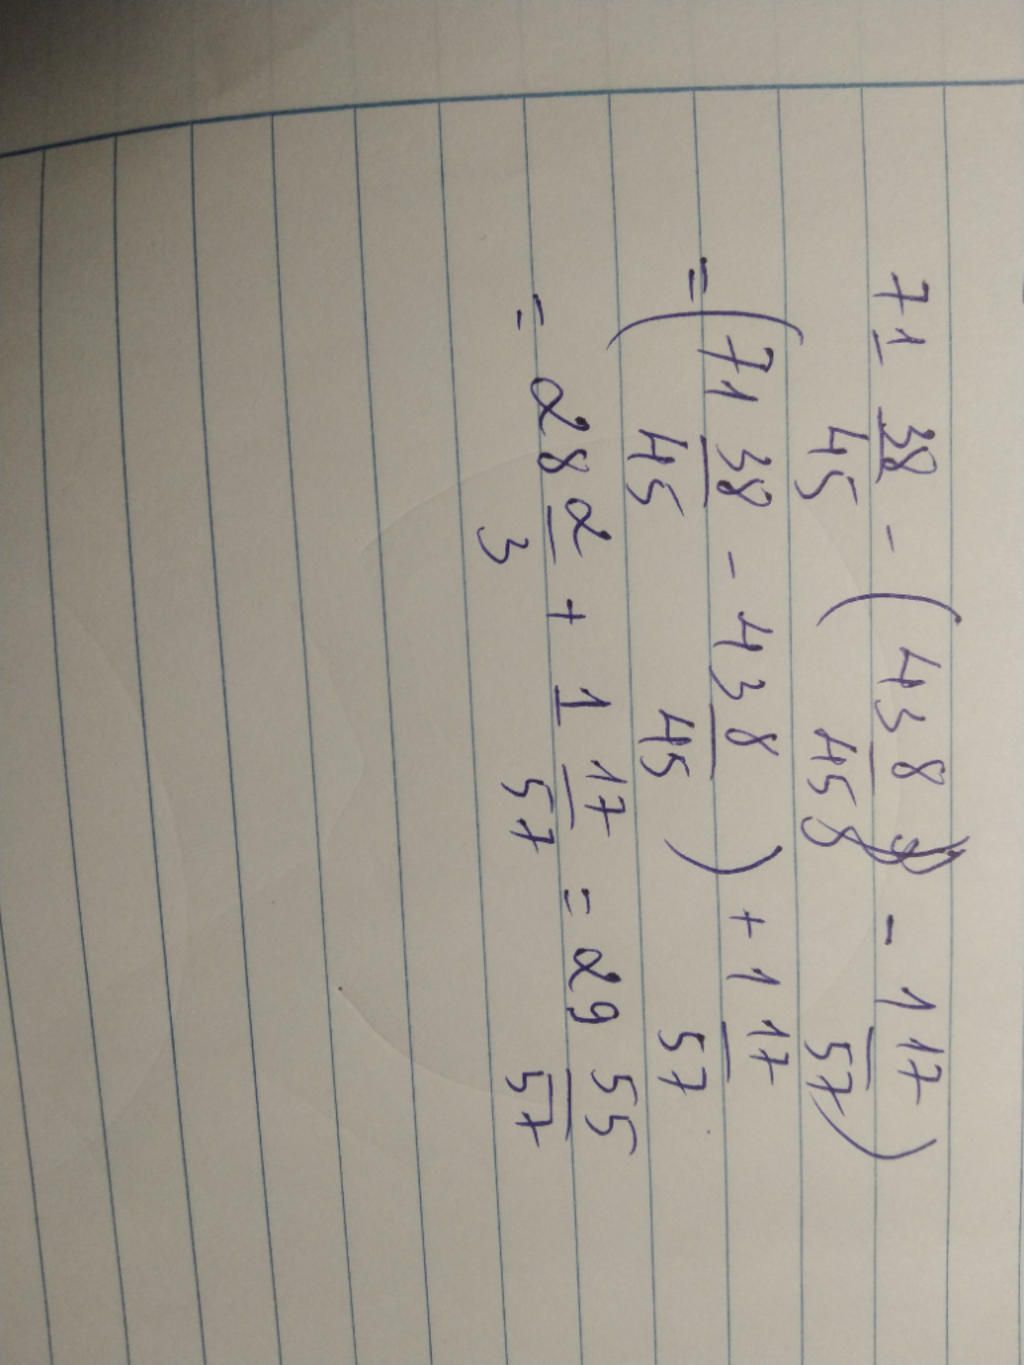 71 38/45 - (43 8/45 - 1 17/57)
= (71 38/45 - 43 8/45) + 1 17/57
= 28 2/3 + 1 17/57 = 29 55/57